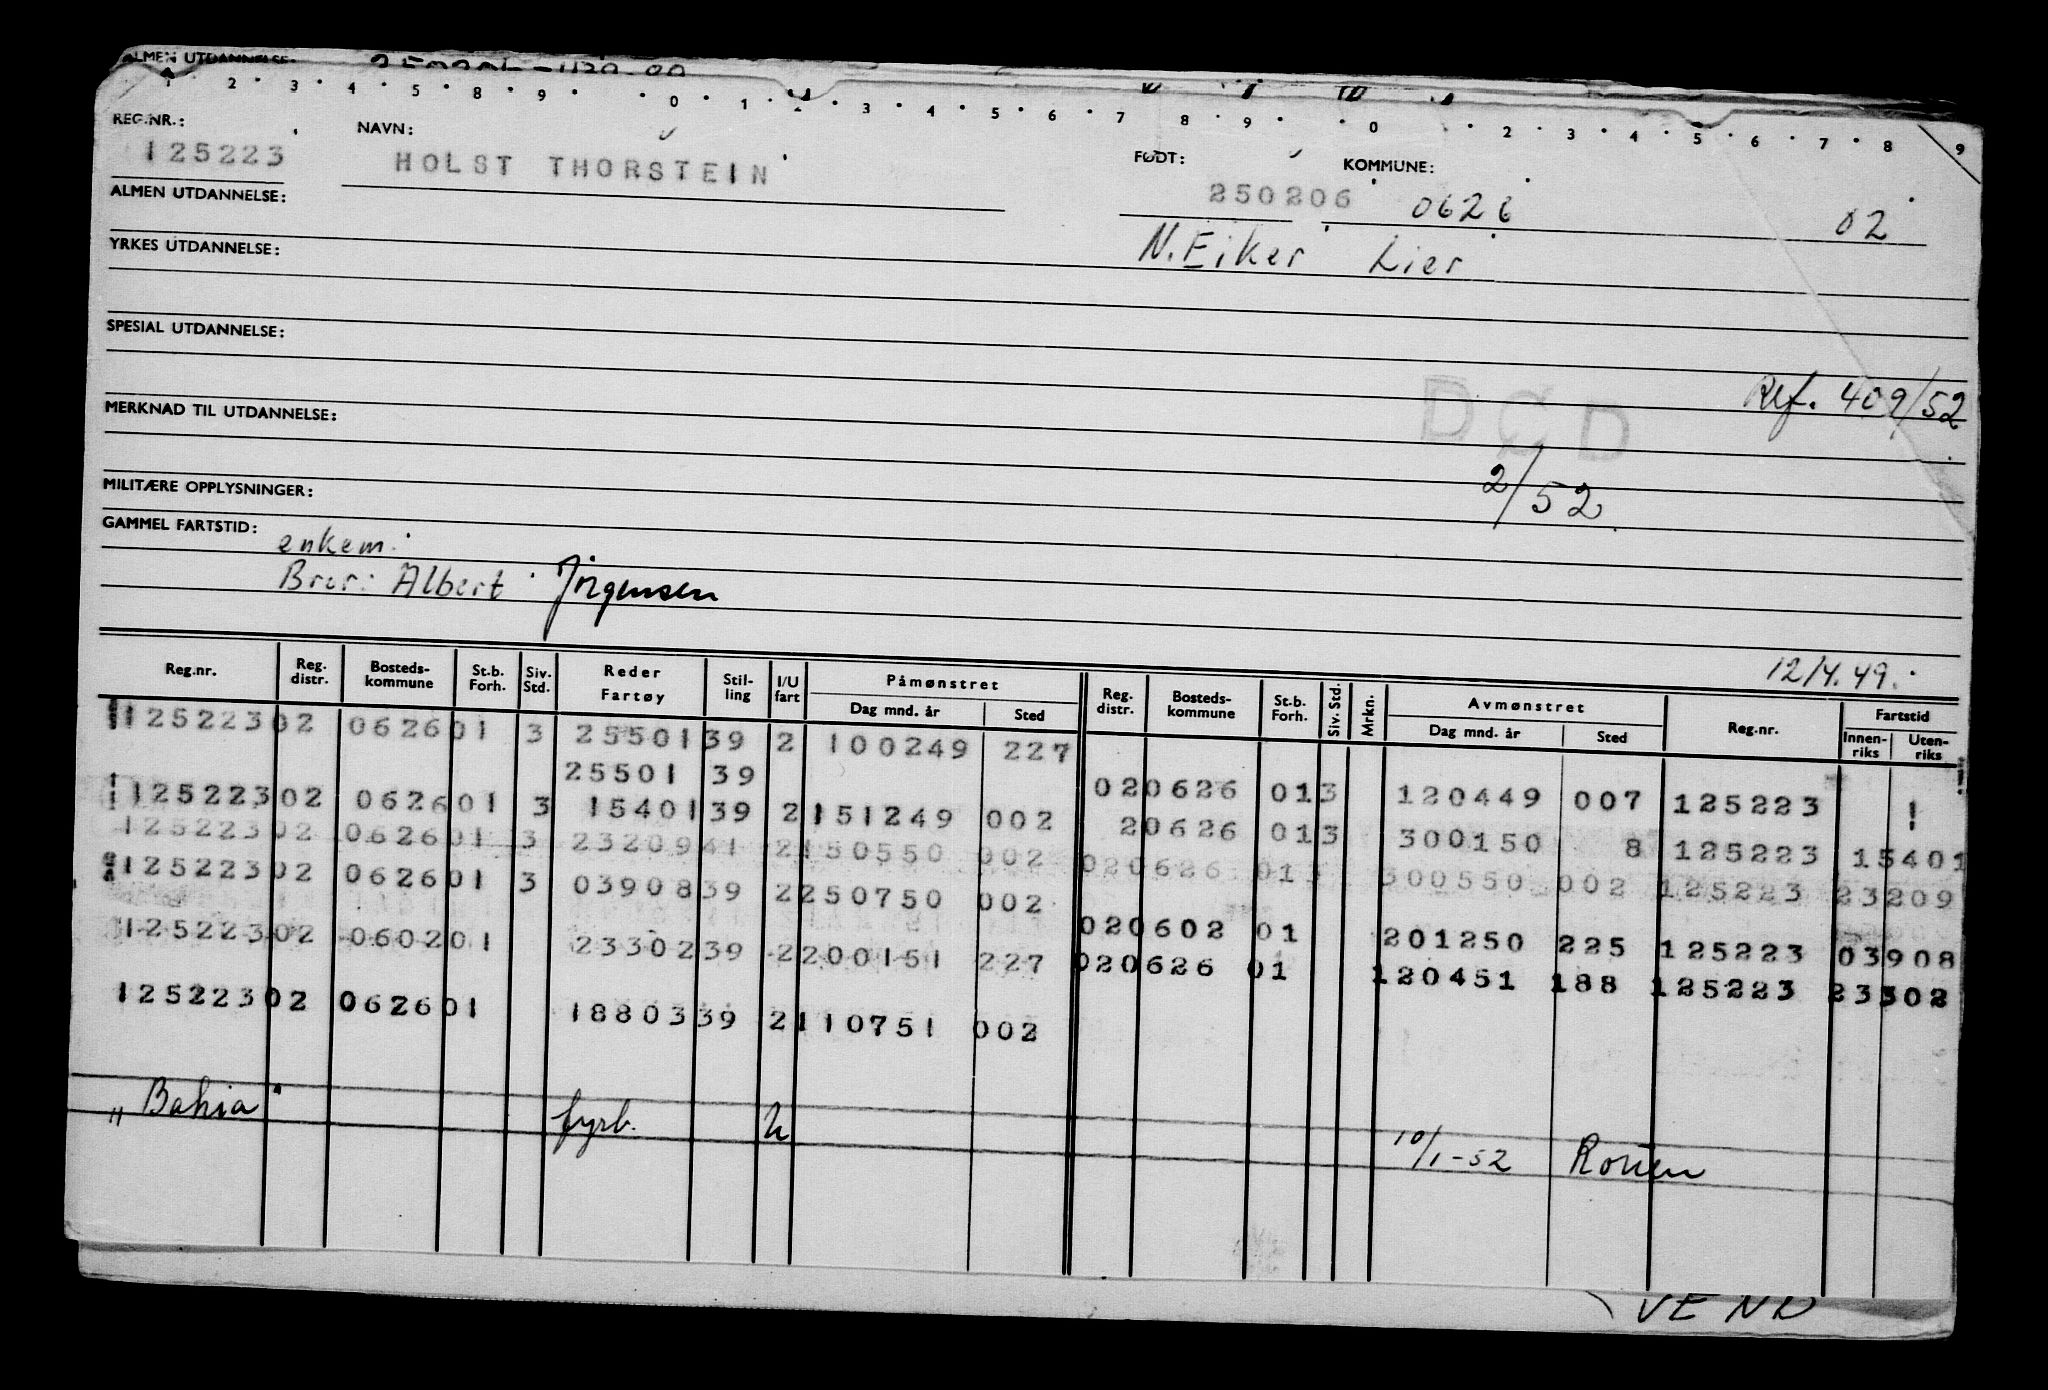 ALMEN UTDANNELSE:
1 2 3 4 5 8 9 0 1 2 3 4 5 6 7 8 9 0 2 3 4 5 6 7 8 9
REG.NR.: NAVN: FØDT: KOMMUNE:
125223 HOLST THORSTEIN 250206 0626 02
ALMEN UTDANNELSE:
N. Eiker Lier
YRKES UTDANNELSE:
SPESIAL UTDANNELSE:
Ref. 409/52
MERKNAD TIL UTDANNELSE: DØD
2/52.
MILITÆRE OPPLYSNINGER:
GAMMEL FARTSTID:
enkem.
Bror: Albert Jörgensen
12/4.49.
Reg.nr. Reg. distr. Bosteds-kommune St.b. Forh. Siv. Std. Reder Fartøy Stil-ling I/U fart Påmønstret Dag mnd. år Sted Reg. distr. Bosteds-kommune St.b. Forh. Siv. Std. Mrkn. Avmønstret Dag mnd. år Sted Reg.nr. Fartstid Innen-riks Uten-riks
125223 02 0626 01 3 25501 39 2 100249 227
25501 39 02 0626 01 3 120449 007 125223
125223 02 0626 01 3 15401 39 2 151249 002 2 0626 01 3 300150 8 125223 15401
125223 02 0626 01 3 23209 41 2 150550 002 02 0626 01 300550 002 125223 23209
125223 02 0626 01 3 03908 39 2 250750 002 02 0602 01 201250 225 125223 03908
125223 02 0602 01 23302 39 2 200151 227 02 0626 01 120451 188 125223 23302
125223 02 0626 01 18803 39 2 110751 002
"Bahia" fyrb. U 10/1-52 Rouen
VEND